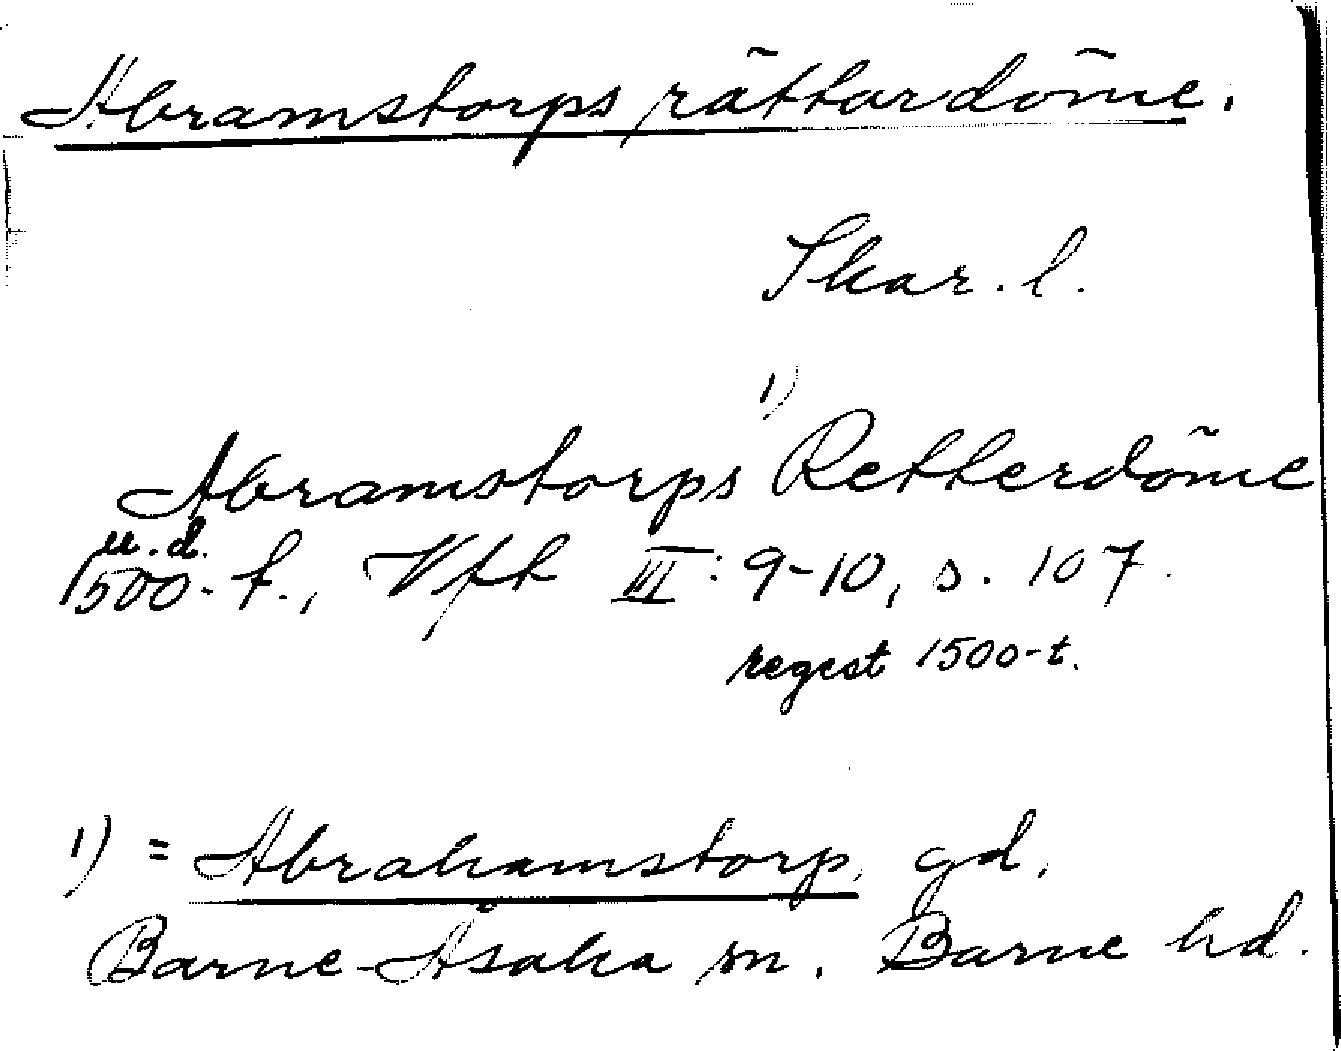 Abramstorps rättardöme.
Skar. l.
Abramstorps 1) Retterdöme
u.d.
1500-t., Vft III: 9-10, s. 107.
regest 1500-t.
1) = Abrahamstorp, gd,
Barne-Åsaka sn. Barne hd.